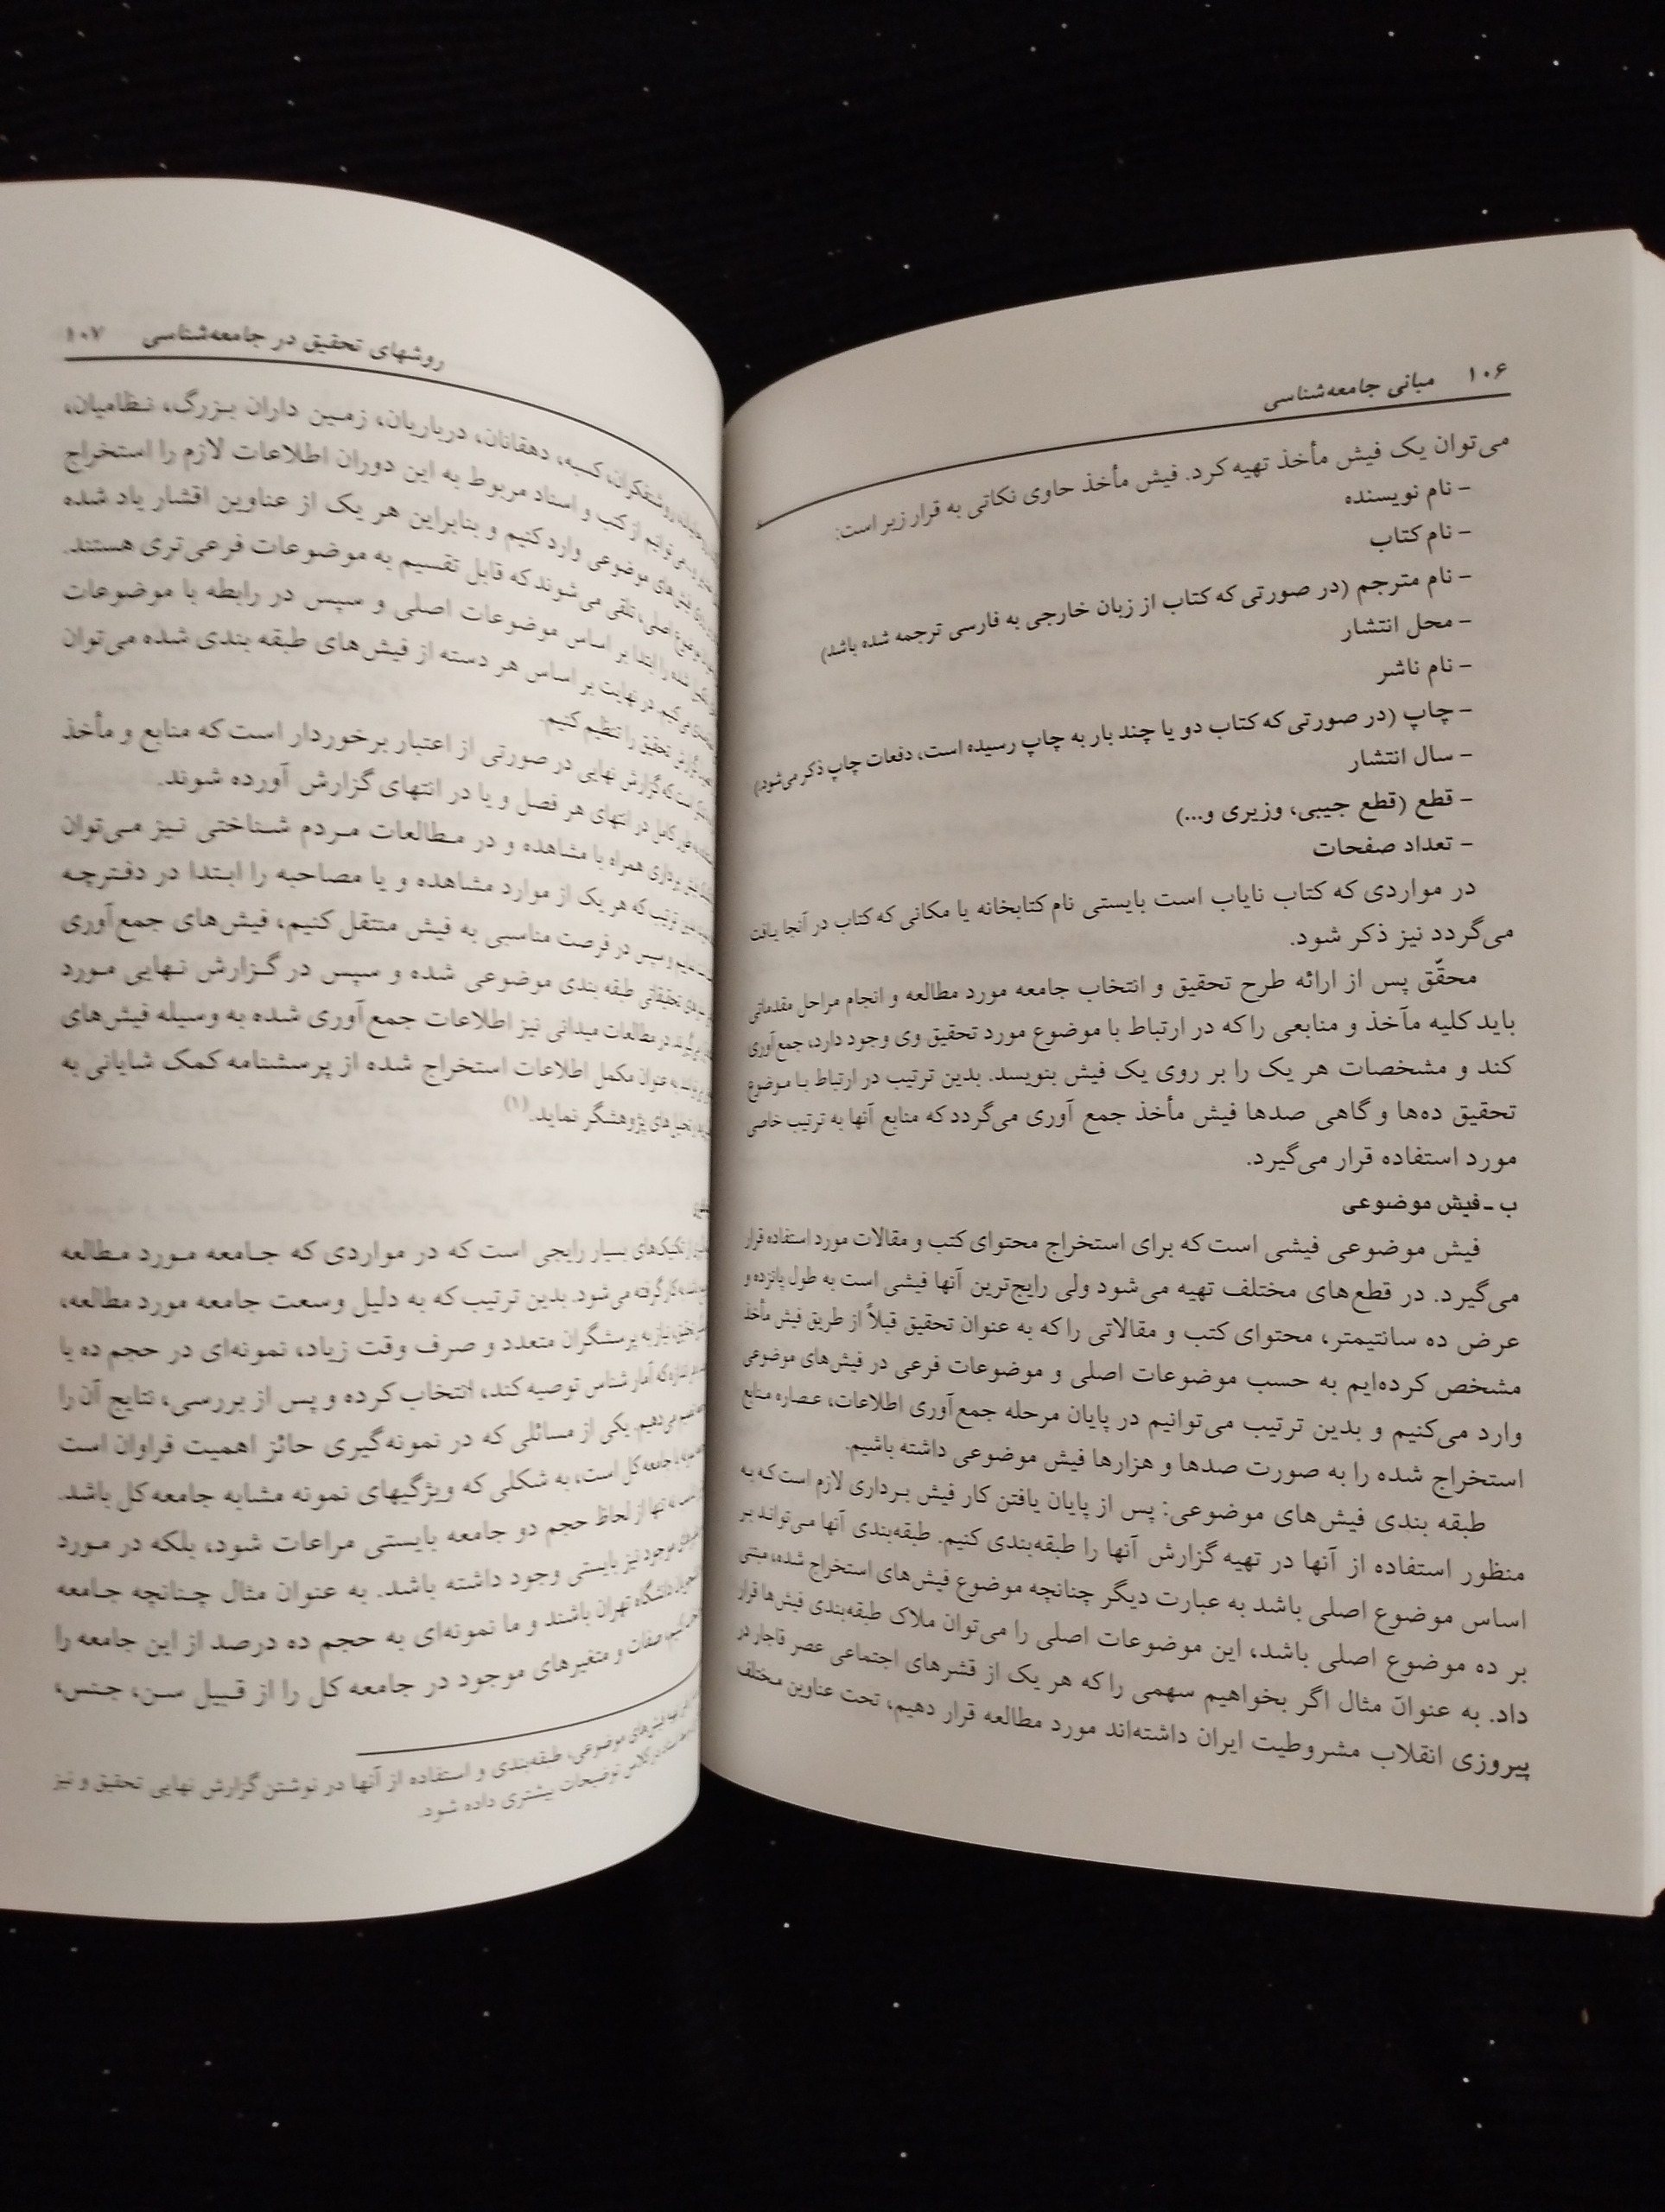 ۱۰۶ مبانی جامعه‌شناسی
می‌توان یک فیش مأخذ تهیه کرد. فیش مأخذ حاوی نکاتی به قرار زیر است:
– نام نویسنده
– نام کتاب
– نام مترجم (در صورتی که کتاب از زبان خارجی به فارسی ترجمه شده باشد)
– محل انتشار
– نام ناشر
– چاپ (در صورتی که کتاب دو یا چند بار به چاپ رسیده است، دفعات چاپ ذکر می‌شود.)
– سال انتشار
– قطع (قطع جیبی، وزیری و...)
– تعداد صفحات
در مواردی که کتاب نایاب است بایستی نام کتابخانه یا مکانی که کتاب در آنجا یافت
می‌گردد نیز ذکر شود.
محقّق پس از ارائه طرح تحقیق و انتخاب جامعه مورد مطالعه و انجام مراحل مقدماتی
باید کلیه مآخذ و منابعی را که در ارتباط با موضوع مورد تحقیق وی وجود دارد، جمع‌آوری
کند و مشخصات هر یک را بر روی یک فیش بنویسد. بدین ترتیب در ارتباط با موضوع
تحقیق ده‌ها و گاهی صدها فیش مأخذ جمع آوری می‌گردد که منابع آنها به ترتیب خاصی
مورد استفاده قرار می‌گیرد.
ب ـ فیش موضوعی
فیش موضوعی فیشی است که برای استخراج محتوای کتب و مقالات مورد استفاده قرار
می‌گیرد. در قطع‌های مختلف تهیه می‌شود ولی رایج‌ترین آنها فیشی است به طول پانزده و
عرض ده سانتیمتر، محتوای کتب و مقالاتی را که به عنوان تحقیق قبلاً از طریق فیش مأخذ
مشخص کرده‌ایم به حسب موضوعات اصلی و موضوعات فرعی در فیش‌های موضوعی
وارد می‌کنیم و بدین ترتیب می‌توانیم در پایان مرحله جمع‌آوری اطلاعات، عصاره منابع
استخراج شده را به صورت صدها و هزارها فیش موضوعی داشته باشیم.
طبقه بندی فیش‌های موضوعی: پس از پایان یافتن کار فیش برداری لازم است که به
منظور استفاده از آنها در تهیه گزارش آنها را طبقه‌بندی کنیم. طبقه‌بندی آنها می‌تواند بر
اساس موضوع اصلی باشد به عبارت دیگر چنانچه موضوع فیش‌های استخراج شده، مبتنی
بر ده موضوع اصلی باشد، این موضوعات اصلی را می‌توان ملاک طبقه‌بندی فیش‌ها قرار
داد. به عنوان مثال اگر بخواهیم سهمی را که هر یک از قشرهای اجتماعی عصر قاجار در
پیروزی انقلاب مشروطیت ایران داشته‌اند مورد مطالعه قرار دهیم، تحت عناوین مختلف
روشهای تحقیق در جامعه‌شناسی ۱۰۷
روشنفکران، کسبه، دهقانان، درباریان، زمین داران بزرگ، نظامیان،
می‌توانیم از کتب و اسناد مربوط به این دوران اطلاعات لازم را استخراج
فیش‌های موضوعی وارد کنیم و بنابراین هر یک از عناوین اقشار یاد شده
موضوع اصلی، تلقی می‌شوند که قابل تقسیم به موضوعات فرعی‌تری هستند.
شده را ابتدا بر اساس موضوعات اصلی و سپس در رابطه با موضوعات
می‌کنیم. در نهایت بر اساس هر دسته از فیش‌های طبقه بندی شده می‌توان
گزارش تحقیق را تنظیم کنیم.
است که گزارش نهایی در صورتی از اعتبار برخوردار است که منابع و مأخذ
کامل در انتهای هر فصل و یا در انتهای گزارش آورده شوند.
برداری همراه با مشاهده و در مطالعات مردم شناختی نیز می‌توان
ترتیب که هر یک از موارد مشاهده و یا مصاحبه را ابتدا در دفترچه
و سپس در فرصت مناسبی به فیش منتقل کنیم، فیش‌های جمع‌آوری
تحقیقاتی طبقه بندی موضوعی شده و سپس در گزارش نهایی مورد
در مطالعات میدانی نیز اطلاعات جمع‌آوری شده به وسیله فیش‌های
به عنوان مکمل اطلاعات استخراج شده از پرسشنامه کمک شایانی به
تحلیل‌های پژوهشگر نماید.(۱)
از تکنیک‌های بسیار رایجی است که در مواردی که جامعه مورد مطالعه
کار گرفته می‌شود. بدین ترتیب که به دلیل وسعت جامعه مورد مطالعه،
نیاز به پرسشگران متعدد و صرف وقت زیاد، نمونه‌ای در حجم ده یا
که آمار شناس توصیه کند، انتخاب کرده و پس از بررسی، نتایج آن را
می‌دهیم. یکی از مسائلی که در نمونه‌گیری حائز اهمیت فراوان است
با جامعه کل است، به شکلی که ویژگیهای نمونه مشابه جامعه کل باشد.
نه تنها از لحاظ حجم دو جامعه بایستی مراعات شود، بلکه در مورد
موجود نیز بایستی وجود داشته باشد. به عنوان مثال چنانچه جامعه
دانشگاه تهران باشند و ما نمونه‌ای به حجم ده درصد از این جامعه را
صفات و متغیرهای موجود در جامعه کل را از قبیل سن، جنس،
فیش‌های موضوعی، طبقه‌بندی و استفاده از آنها در نوشتن گزارش نهایی تحقیق و نیز
در کلاس توضیحات بیشتری داده شود.